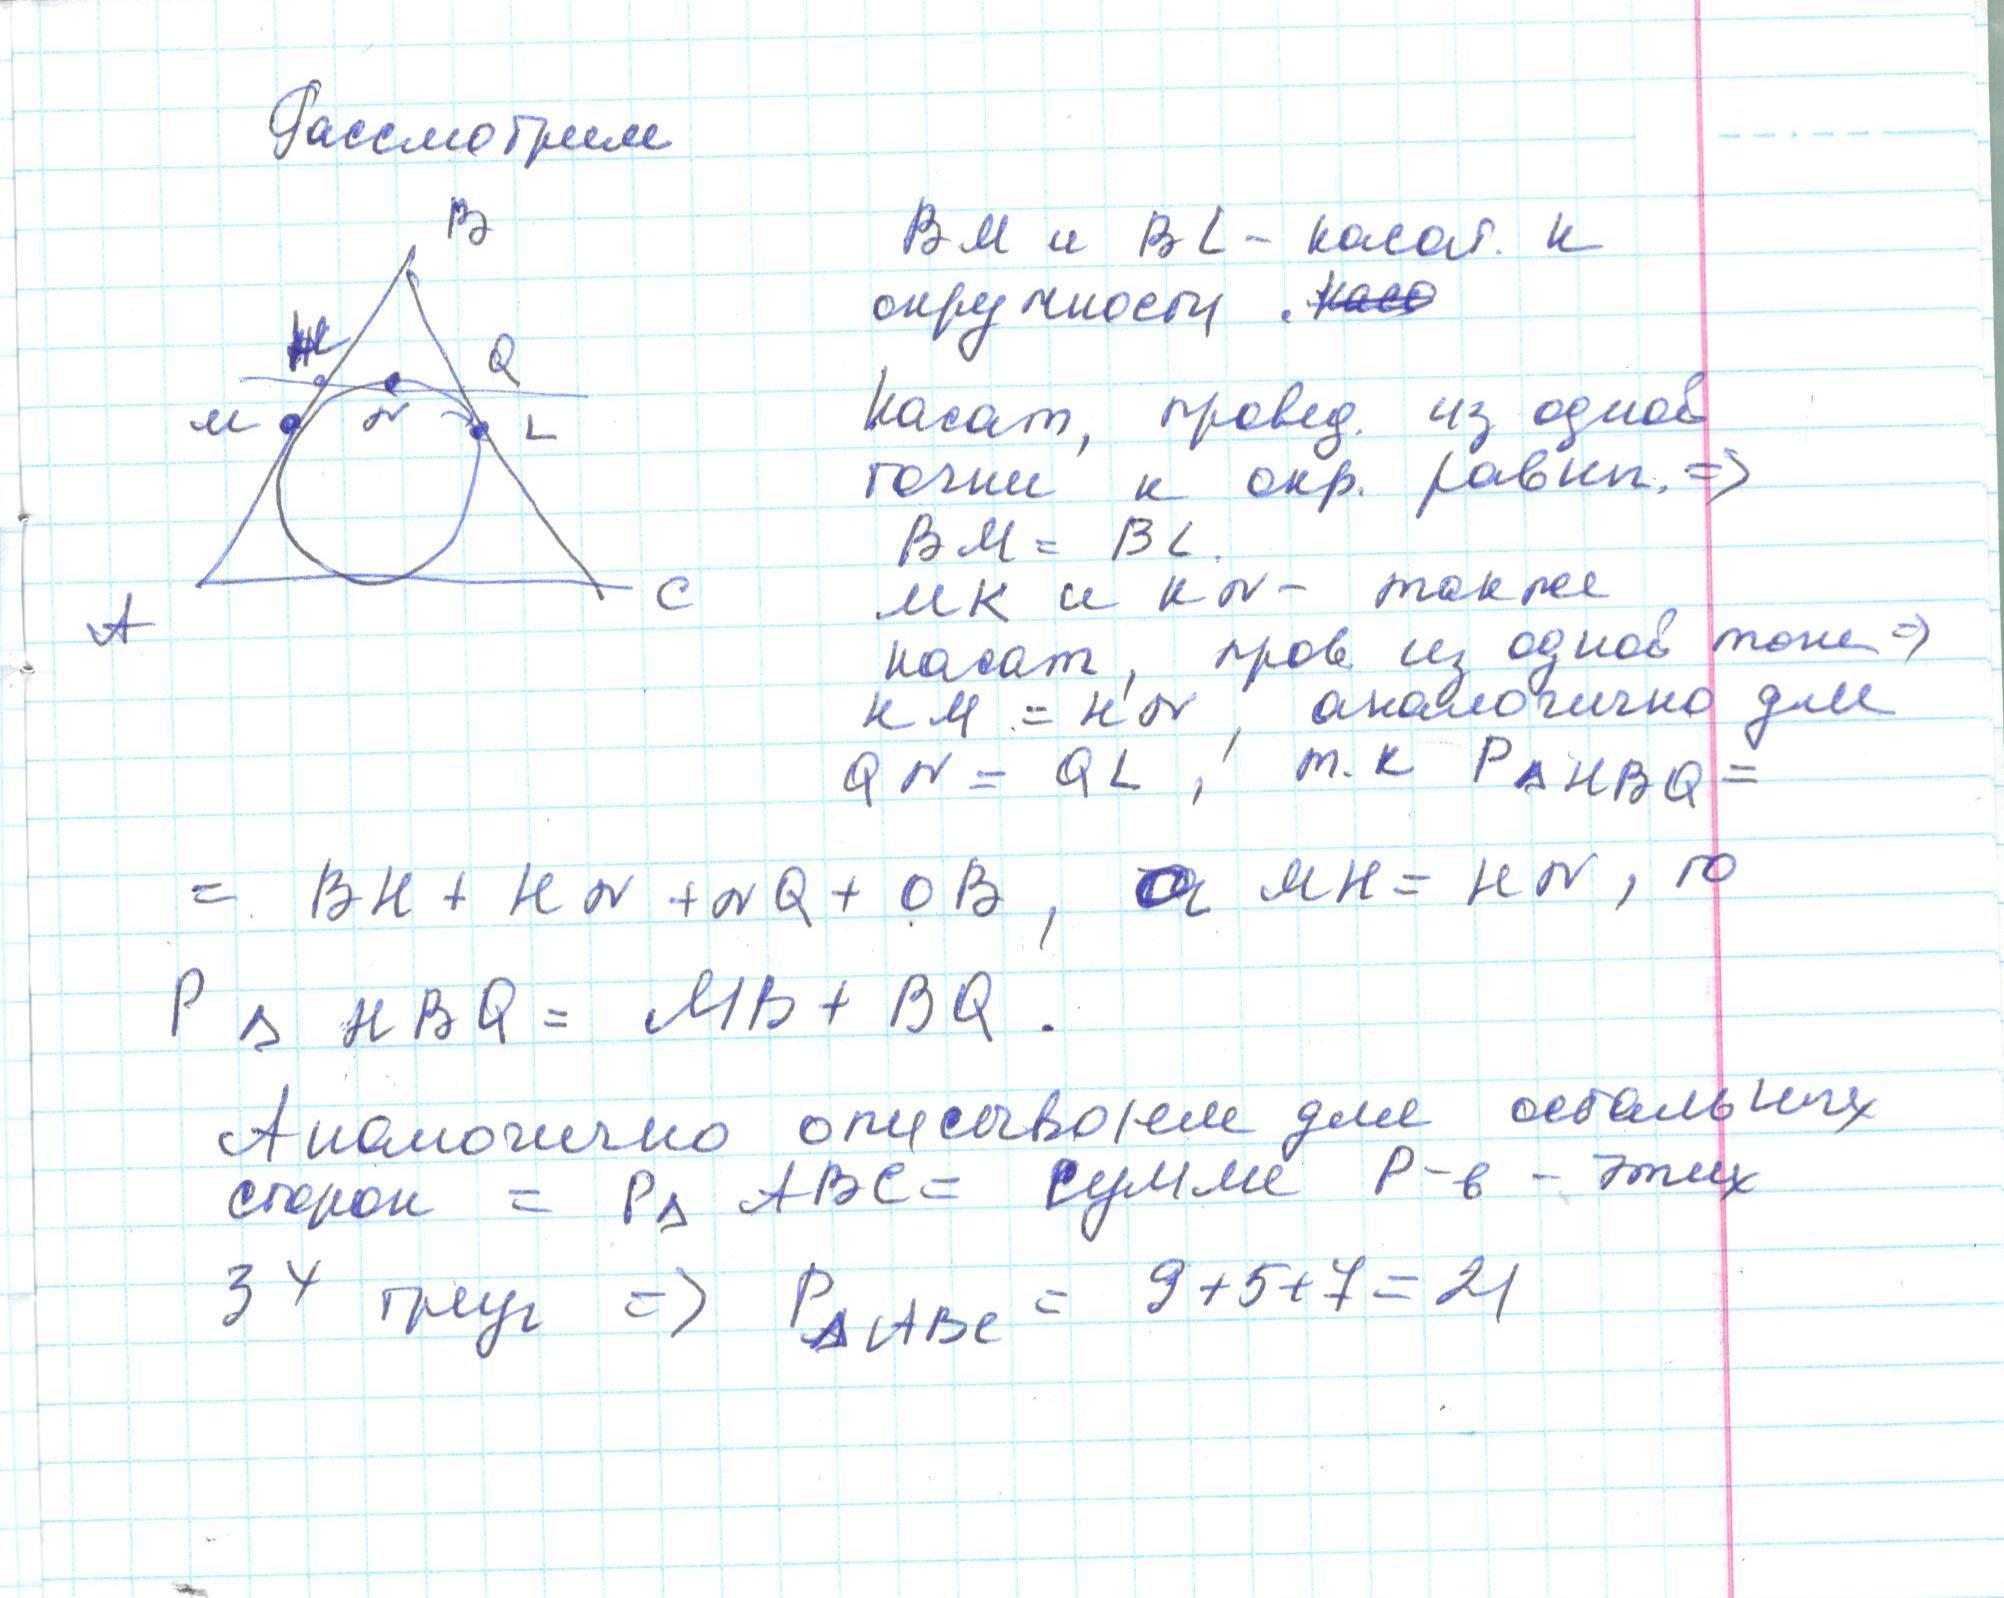 Рассмотрим
B
Q
M
N
L
A
C
BM и BL - касат. к
окружности.
Касат, провед. из одной
точки к окр. равны. =>
BM = BL.
MK и KN - также
касат, пров из одной точк =>
KM = KN, аналогично для
QN = QL, т.к P△HBQ =
= BH + HN + NQ + QB, а MH = HN, то
P△HBQ = MB + BQ.
Аналогично описываем для остальных
сторон = P△ABC = сумме P-в - этих
3х треуг => P△ABC = 9+5+7=21